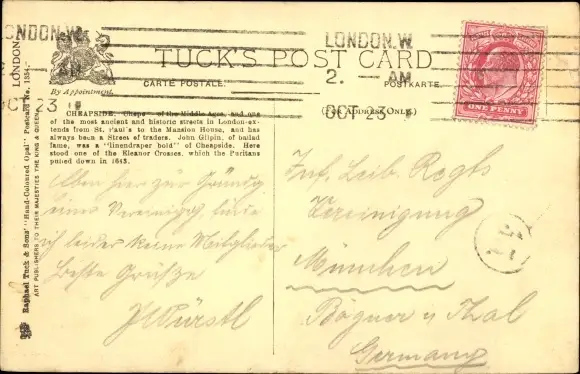 LONDON.W.
TUCK'S POST CARD
CARTE POSTALE.
POSTKARTE
By Appointment.
(For Address Only.)
LONDON.W.
2. — AM
OCT 23
OCT 23
ONE PENNY
CHEAPSIDE. Cheps of the Middle Ages, and one
of the most ancient and historic streets in London—ex-
tends from St. Paul's to the Mansion House, and has
always been a Street of traders. John Gilpin, of ballad
fame, was a "linendraper bold" of Cheapside. Here
stood one of the Eleanor Crosses, which the Puritans
pulled down in 1643.
Raphael Tuck & Sons' "Hand-Coloured Opal" Postcard No. 1354. LONDON
ART PUBLISHERS TO THEIR MAJESTIES THE KING & QUEEN.
hier zur Gründg
einer Vereinigg finde
ich leider keine Mitglieder
Beste Grüsse
JWürstl
Inf. Leib. Regts
Vereinigung
München
Bögner i/ Thal
Germany